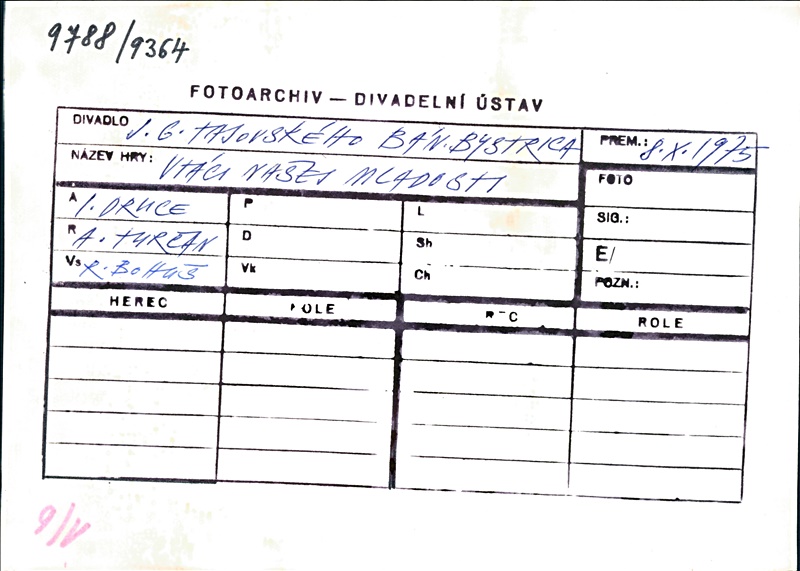 9788/9364
FOTOARCHIV — DIVADELNÍ ÚSTAV
DIVADLO J. G. TAJOVSKÉHO BÁN. BYSTRICA
PREM.: 8. X. 1975
NÁZEV HRY: VTÁCI NAŠEJ MLADOSTI
FOTO
A I. DRUCE
P
L
SIG.:
R A. TURČAN
D
Sh
E/
Vs R. BOHUŠ
Vk
Ch
POZN.:
HEREC
ROLE
ROLE